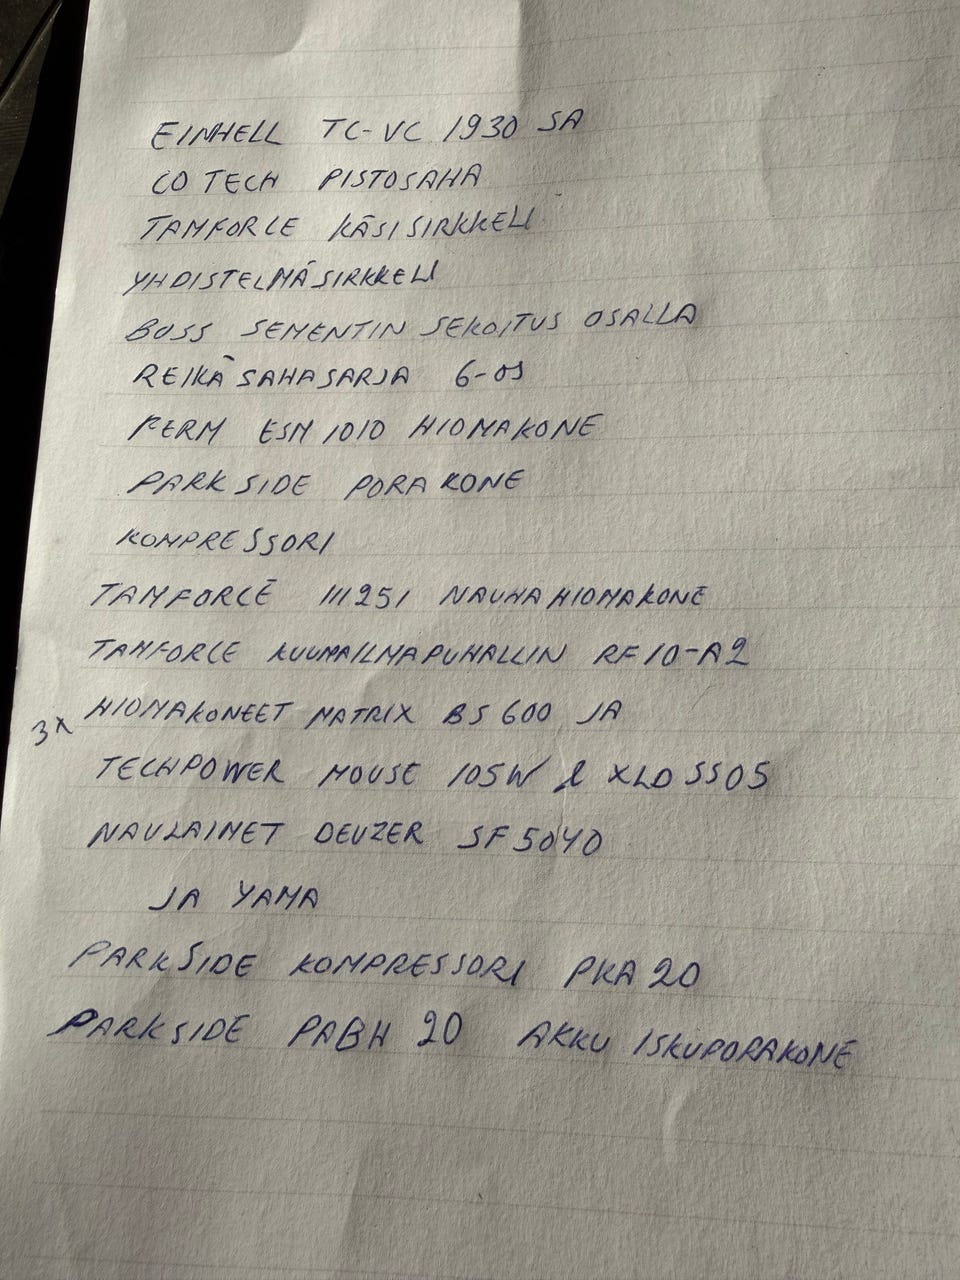 EINHELL TC-VC 1930 SA
CO TECH PISTOSAHA
TAMFORCE KÄSISIRKKELI
YHDISTELMÄSIRKKELI
BOSS SEMENTIN SEKOITUS OSALLA
REIKÄSAHASARJA 6-OS
FERM ESM 1010 HIOMAKONE
PARKSIDE PORAKONE
KOMPRESSORI
TAMFORCE 111251 NAUHAHIOMAKONE
TAMFORCE KUUMAILMAPUHALLIN RF10-A2
3X HIOMAKONEET MATRIX BS 600 JA
TECHPOWER MOUSE 105W & XLD SS05
NAULAIMET DEUZER SF5040
JA YAMA
PARKSIDE KOMPRESSORI PKA20
PARKSIDE PABH 20 AKKU ISKUPORAKONE